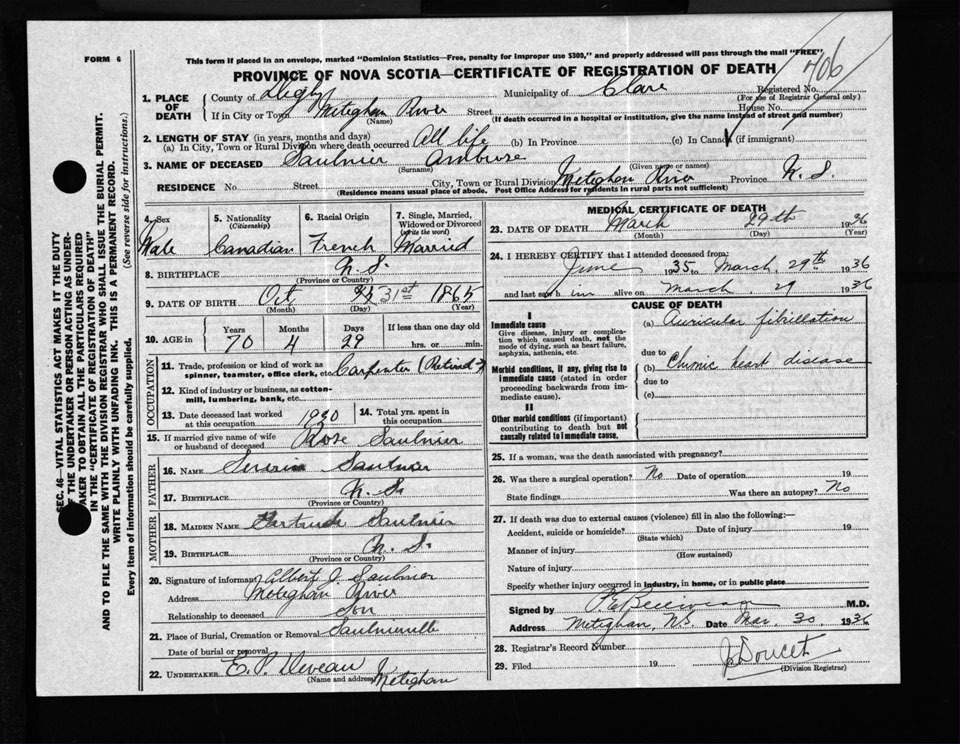 FORM 6
This form if placed in an envelope, marked "Dominion Statistics—Free, penalty for improper use $300," and properly addressed will pass through the mail "FREE"
PROVINCE OF NOVA SCOTIA—CERTIFICATE OF REGISTRATION OF DEATH
706
1. PLACE OF DEATH
County of Digby Municipality of Clare Registered No.
(For use of Registrar General only)
If in City or Town Meteghan River Street House No.
(Name) (If death occurred in a hospital or institution, give the name instead of street and number)
2. LENGTH OF STAY (in years, months and days)
(a) In City, Town or Rural Division where death occurred All life (b) In Province (c) In Canada (if immigrant)
3. NAME OF DECEASED Saulnier Ambrose
(Surname) (Given name or names)
RESIDENCE No. Street City, Town or Rural Division Meteghan River Province N. S.
(Residence means usual place of abode. Post Office Address for residents in rural parts not sufficient)
4. Sex
Male
5. Nationality
(Citizenship)
Canadian
6. Racial Origin
French
7. Single, Married, Widowed or Divorced
(write the word)
Married
8. BIRTHPLACE N. S.
(Province or Country)
9. DATE OF BIRTH Oct 31st 1865
(Month) (Day) (Year)
10. AGE in
Years Months Days If less than one day old
70 4 29 hrs. or min.
OCCUPATION
11. Trade, profession or kind of work as spinner, teamster, office clerk, etc. Carpenter (Retired)
12. Kind of industry or business, as cotton-mill, lumbering, bank, etc.
13. Date deceased last worked at this occupation 1930
14. Total yrs. spent in this occupation
15. If married give name of wife or husband of deceased Rose Saulnier
FATHER
16. NAME Saulnier
17. BIRTHPLACE N. S.
(Province or Country)
MOTHER
18. MAIDEN NAME Gertrude Saulnier
19. BIRTHPLACE N. S.
(Province or Country)
20. Signature of informant Albert J. Saulnier
Address Meteghan River
Relationship to deceased Son
21. Place of Burial, Cremation or Removal Saulnierville
Date of burial or removal
22. UNDERTAKER E. P. Deveau Meteghan
(Name and address)
MEDICAL CERTIFICATE OF DEATH
23. DATE OF DEATH March 29th 1936
(Month) (Day) (Year)
24. I HEREBY CERTIFY that I attended deceased from:
June 1935 to March. 29th 1936
and last saw him alive on March. 29 1936
CAUSE OF DEATH
I
Immediate cause
Give disease, injury or complication which caused death, not the mode of dying, such as heart failure, asphyxia, asthenia, etc.
(a) Auricular fibrillation
due to
Morbid conditions, if any, giving rise to immediate cause (stated in order proceeding backwards from immediate cause).
(b) Chronic heart disease
due to
(c)
II
Other morbid conditions (if important) contributing to death but not causally related to immediate cause.
25. If a woman, was the death associated with pregnancy?
26. Was there a surgical operation? No Date of operation 19
State findings Was there an autopsy? No
27. If death was due to external causes (violence) fill in also the following:—
Accident, suicide or homicide? Date of injury 19
(State which)
Manner of injury
(How sustained)
Nature of injury
Specify whether injury occurred in industry, in home, or in public place
Signed by M.D.
Address Meteghan, N.S. Date Mar. 30 1936
28. Registrar's Record Number
29. Filed 19 J. Doucet
(Division Registrar)
SEC. 46—VITAL STATISTICS ACT MAKES IT THE DUTY
OF THE UNDERTAKER OR PERSON ACTING AS UNDERTAKER TO OBTAIN ALL THE PARTICULARS REQUIRED
IN THE "CERTIFICATE OF REGISTRATION OF DEATH"
AND TO FILE THE SAME WITH THE DIVISION REGISTRAR WHO SHALL ISSUE THE BURIAL PERMIT.
WRITE PLAINLY WITH UNFADING INK. THIS IS A PERMANENT RECORD.
Every item of information should be carefully supplied. (See reverse side for instructions.)